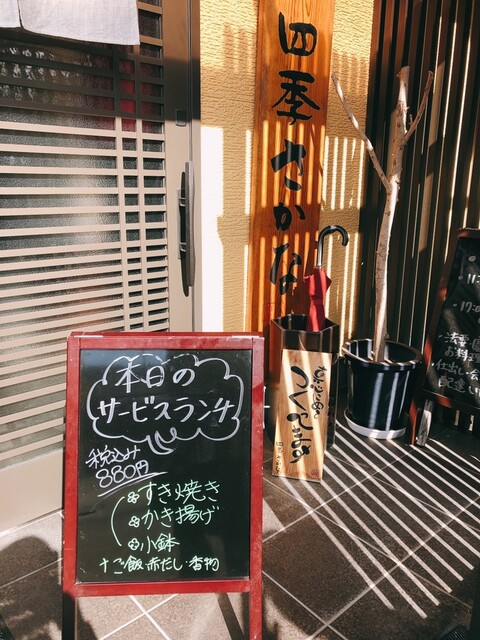 四季さかな
本日の
サービスランチ
税込み
880円
すき焼き
かき揚げ
小鉢
+ご飯・赤だし・香物
お料理
仕出し